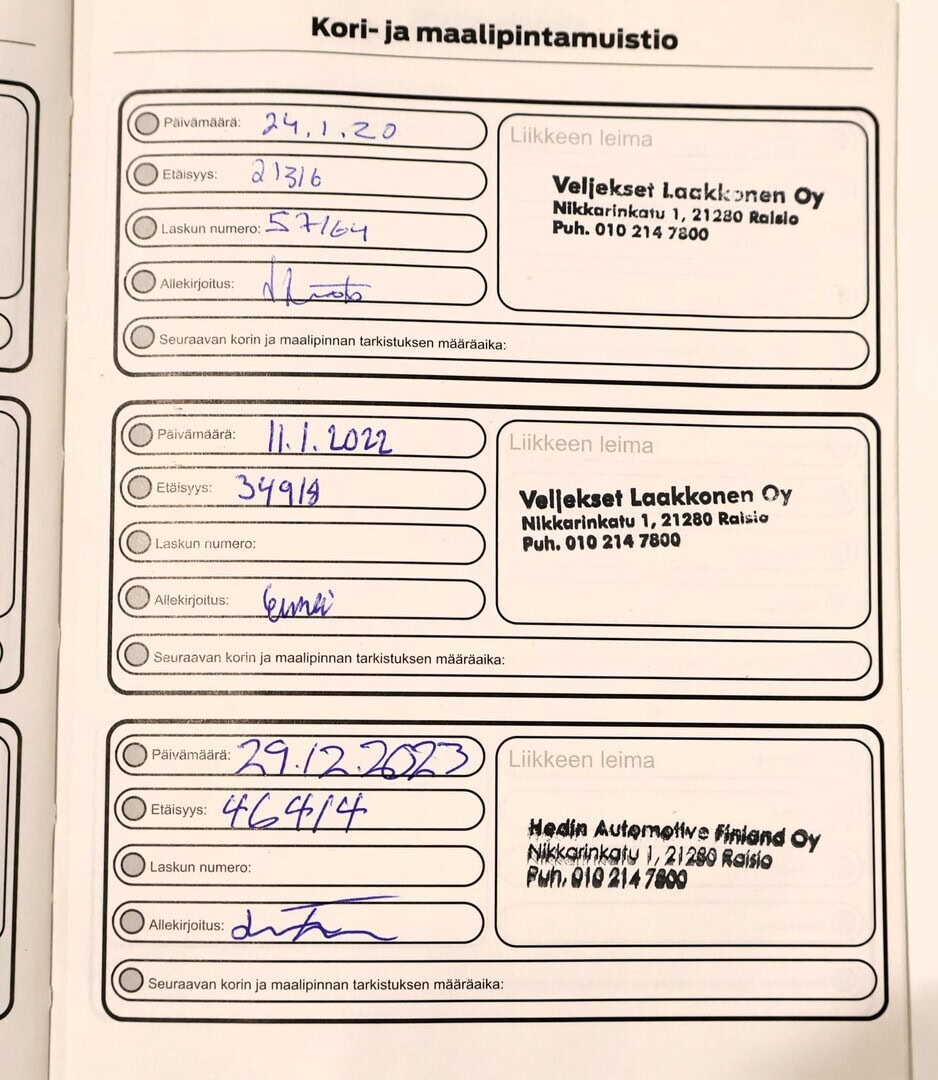 Kori- ja maalipintamuistio
Päivämäärä: 24.1.20
Etäisyys: 21316
Laskun numero: 57164
Allekirjoitus:
Seuraavan korin ja maalipinnan tarkistuksen määräaika:
Liikkeen leima
Veljekset Laakkonen Oy
Nikkarinkatu 1, 21280 Raisio
Puh. 010 214 7800
Päivämäärä: 11.1.2022
Etäisyys: 34918
Laskun numero:
Allekirjoitus:
Seuraavan korin ja maalipinnan tarkistuksen määräaika:
Liikkeen leima
Veljekset Laakkonen Oy
Nikkarinkatu 1, 21280 Raisio
Puh. 010 214 7800
Päivämäärä: 29.12.2023
Etäisyys: 46414
Laskun numero:
Allekirjoitus:
Seuraavan korin ja maalipinnan tarkistuksen määräaika:
Liikkeen leima
Hedin Automotive Finland Oy
Nikkarinkatu 1, 21280 Raisio
Puh. 010 214 7800